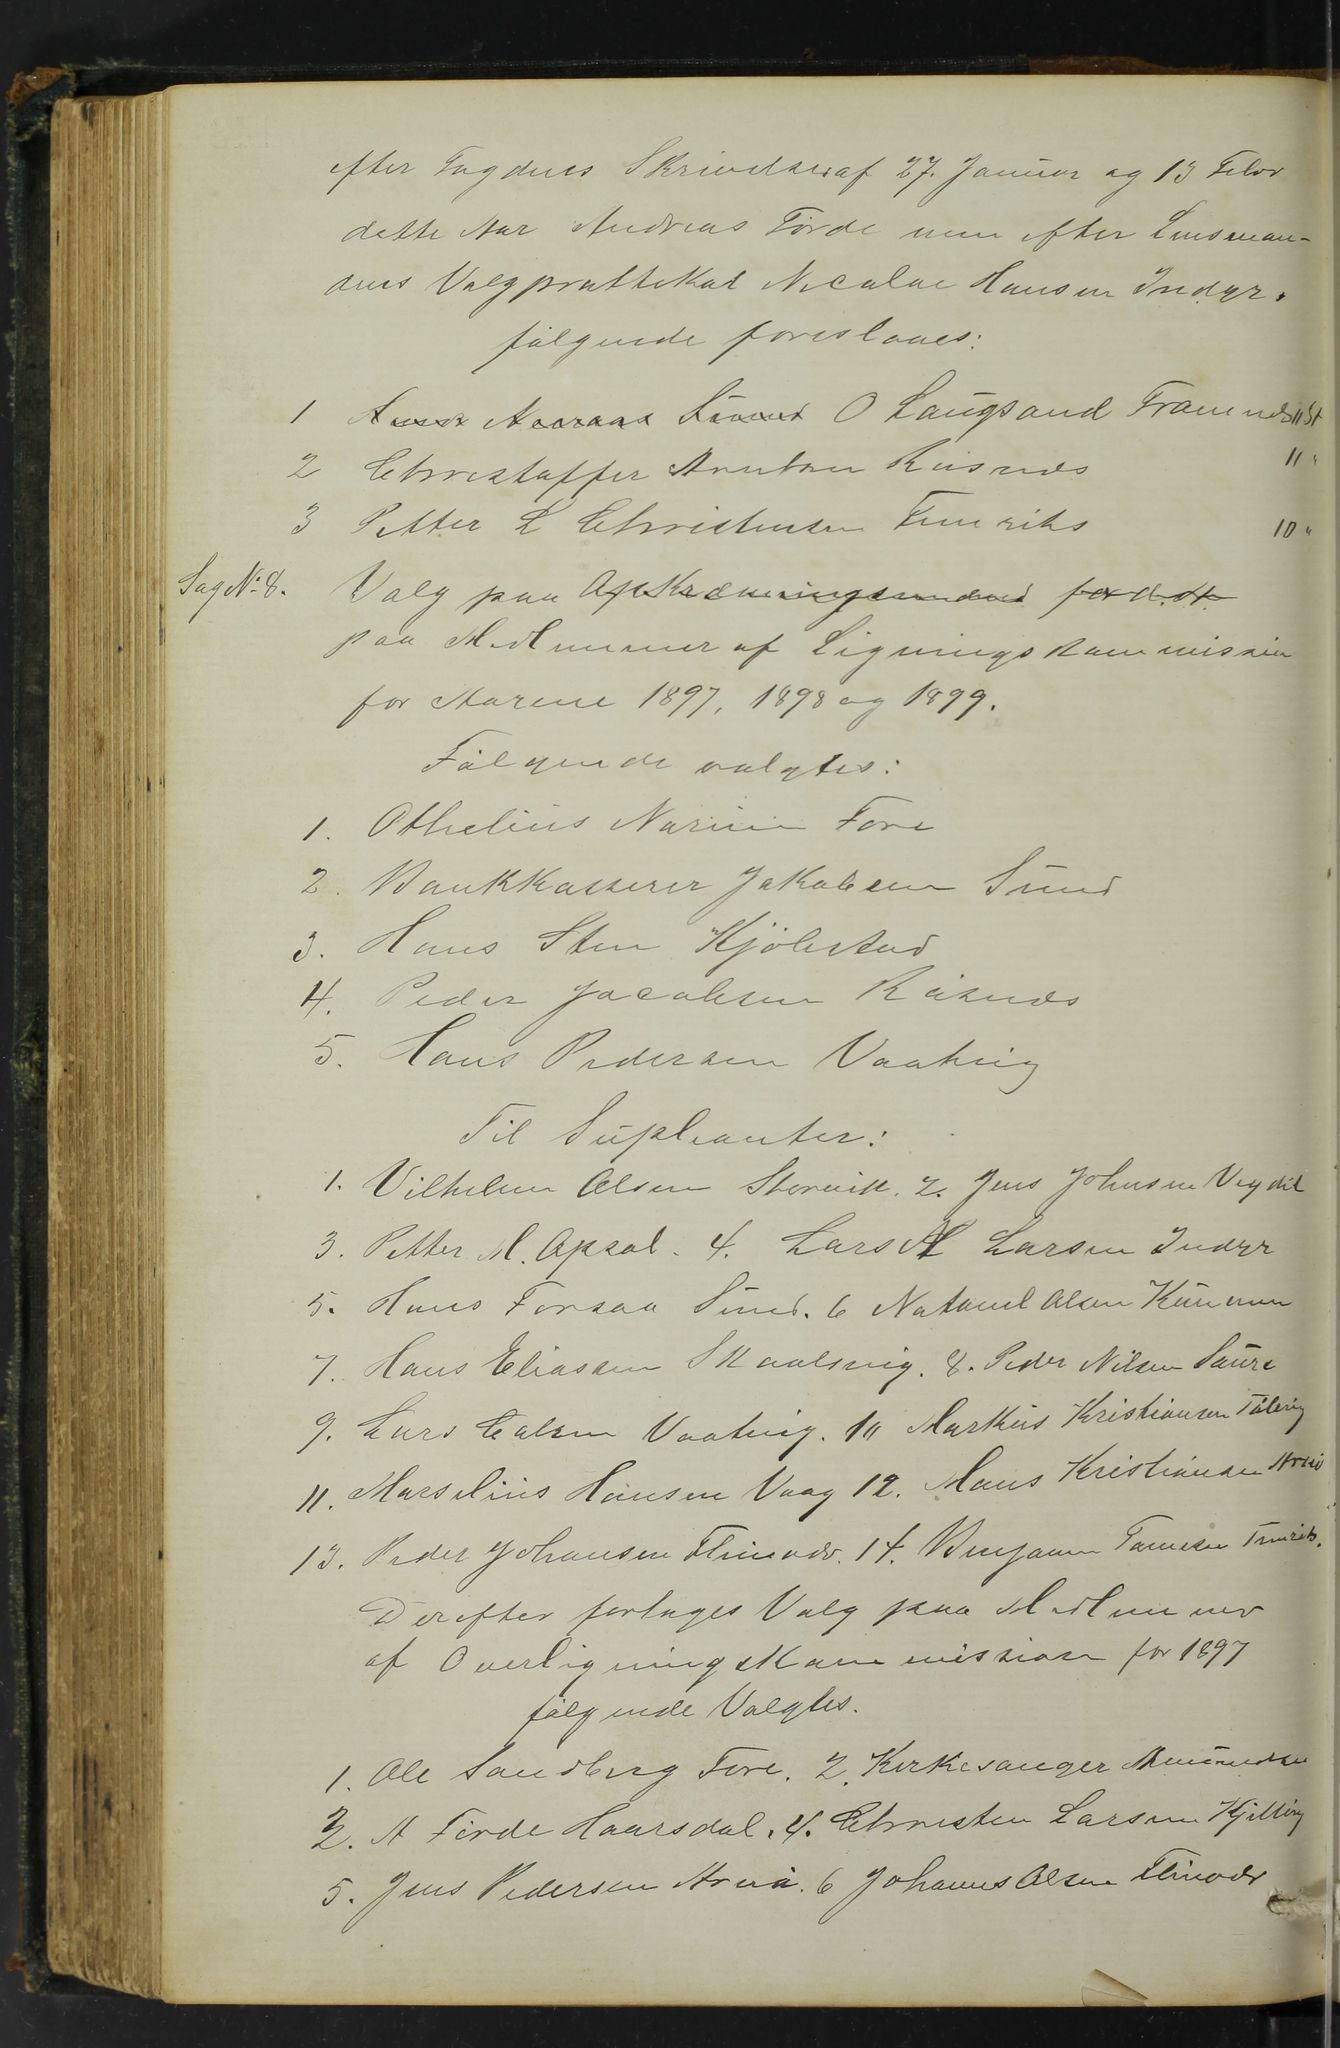 efter Fogdens Skrivelser af 27. Januar og 13 Febr
dette Aar Andreas Förde men efter Lensman-
dens Valgprottekol Nicolae Hansen Indyr.
følgende foreslaaes:
1 O Laugsand Framnes 11 St
2 Christoffer Arntsen Reisnes 11 "
3 Petter L Christensen Finnriks 10 "
Sag No 8. Valg paa Opkrævningsmænd for d. A.
paa Medlemmer af Ligningskommission
for Aarene 1897, 1898 og 1899.
Følgende valgtes:
1. Othelius Fore
2. Bankkasserer Jakobsen Sund
3. Hans Sten Kjölstad
4. Peder Jacobsen
5. Hans Pedersen Vaatvig
Til Supleanter:
1. Vilhelm Olsen Storvik. 2. Jens Johnsen Vegdal
3. Petter M. Opsal. 4. Lars M Larsen Indyr
5. Hans Forsaa Sund. 6 Natanel Olsen
7. Hans Eliassen Skaalsvig. 8. Peder Nilsen Saura
9. Lars Vaatvig. 10 Markus Kristiansen
11. Marselius Hansen Vaag 12. Hans Kristiansen
13. Peder Johansen 14. Benjamin
Derefter fortages Valg paa Medlemmer
af Overligningskommission for 1897
følgende Valgtes.
1. Ole Sandberg Fore. 2. Kirkesanger Amundsen
3. A Förde Haarsdal. 4. Christen Larsen Kjelling
5. Jens Pedersen. 6 Johannes Olsen